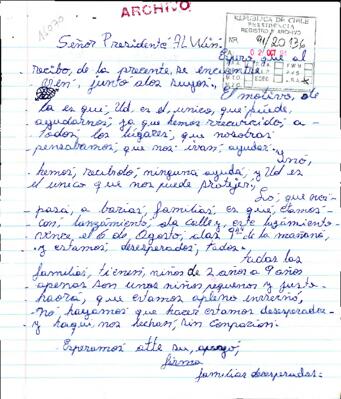 ARCHIVO
REPUBLICA DE CHILE
PRESIDENCIA
REGISTRO Y ARCHIVO
NR. 91/20136
Señor Presidente: ALWIN.
Espero, que al
recibo, de la presente, se encuentre
bien, junto alos suyos.
El motivo, de
la es que, Ud. es el, unico, que puede,
ayudarnos, ya que hemos recuricido, a
todos, los lugares, que nosotros
pensabamos, que nos ivan, ayudar.
y no,
hemos, recibido, ninguna ayuda, y Ud es
el unico que nos puede proteger,
Lo, que nos
pasa, a barias, familias, es que, estamos
con, lanzamiento, ala calle, y, este lanzamiento
vence, el de, Agosto, alas 9 de la mañana,
y estamos, desesperados, todos.
todas las
familias, tienen, niños de 2 años a 9 años
apenas son unos niños, pequenos y justo
haora, que estamos apleno invierno,
no, hayamos, que hacer estamos desesperados
y haqui, nos hechan, sin conpacion.
Esperamos atte su, apoyo,
firma
familias desesperadas.